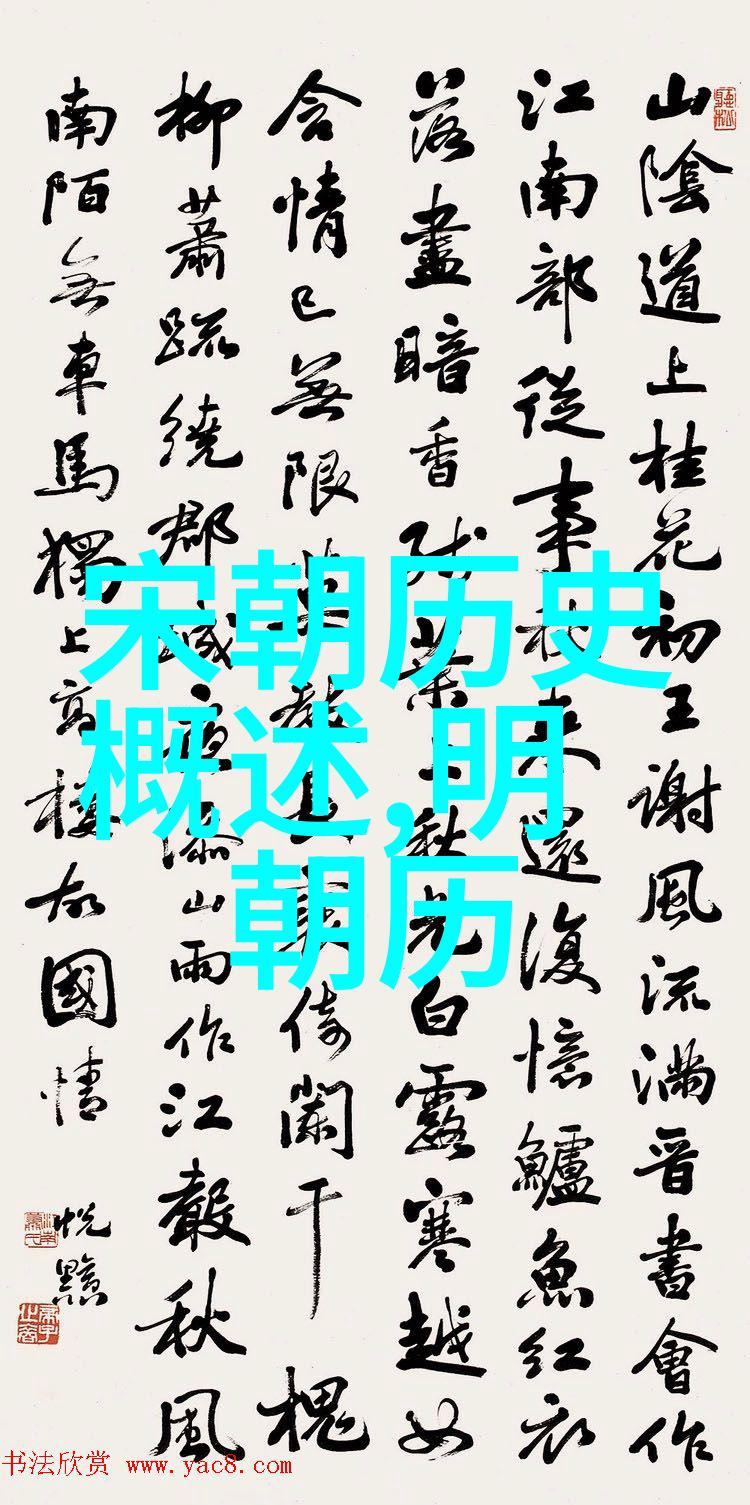 山陰道上桂花初王謝風流滿晉書會作
江南部從事秋来還復憶鱸魚紅衣
落盡暗香残葉上秋光白露寒越女
含情已無限莫教長倚闌干槐
柳蕭疏繞郡城夜添山雨作江聲秋風
南陌無車馬獨上高樓故國情
宋朝历史
概述,明
朝历
书法欣赏 www.yac8.com